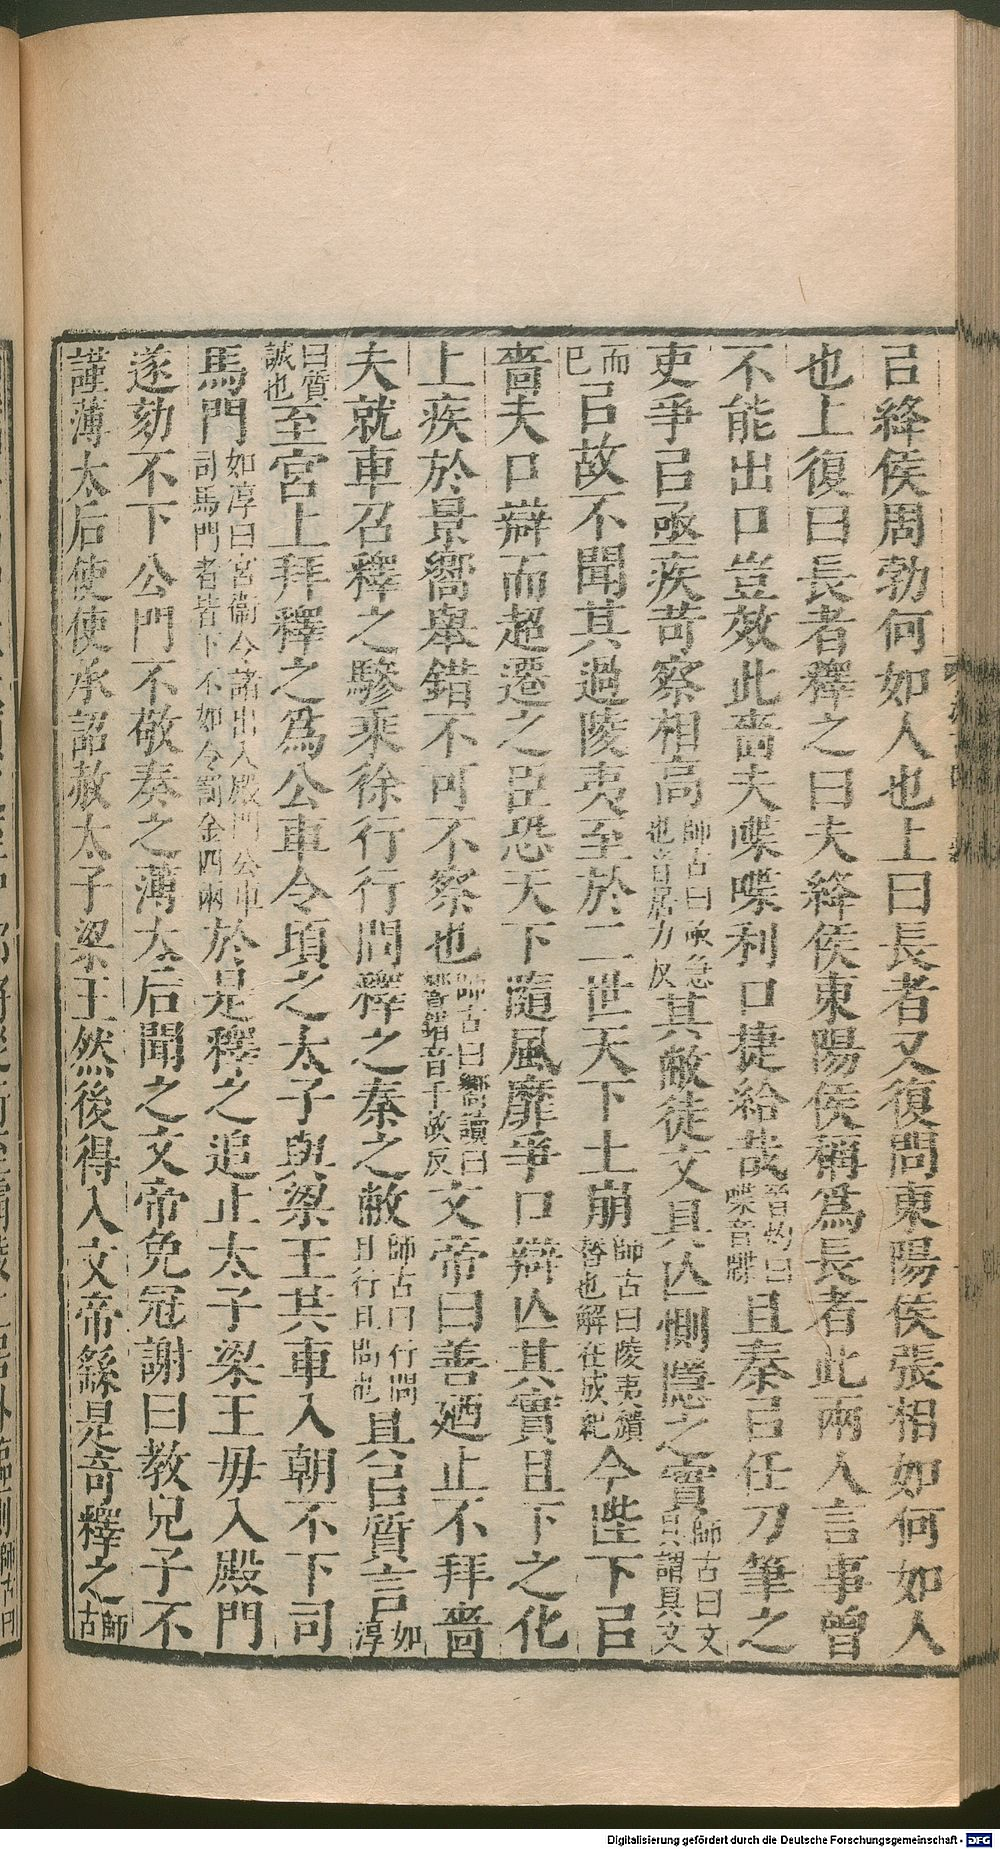 㠯絳侯周勃何如人也上曰長者又復問東陽侯張相如何如人
也上復曰長者釋之曰夫絳侯東陽侯稱爲長者此兩人言事曾
不能出口豈效此嗇夫喋喋利口捷給哉晉灼曰喋音牒且秦㠯任刀筆之
吏爭㠯亟疾苛察相高師古曰亟急也音居力反其敝徒文具亾惻隱之實師古曰文具謂具文
而已㠯故不聞其過陵夷至於二世天下土崩師古曰陵夷頹替也解在成紀今陛下㠯
嗇夫口辯而超遷之臣恐天下隨風靡爭口辯亾其實且下之化
上疾於景嚮舉錯不可不察也師古曰嚮讀曰響錯音千故反文帝曰善廼止不拜嗇
夫就車召釋之驂乘徐行行問釋之秦之敝師古曰行問且行且問也具㠯質言如淳
曰質誠也至宮上拜釋之爲公車令頃之太子與梁王共車入朝不下司
馬門如淳曰宮衞令諸出入殿門公車司馬門者皆下不如令罰金四兩於是釋之追止太子梁王毋入殿門
遂劾不下公門不敬奏之薄太后聞之文帝免冠謝曰教兒子不
謹薄太后使使承詔赦太子梁王然後得入文帝繇是奇釋之師古
Digitalisierung gefördert durch die Deutsche Forschungsgemeinschaft - DFG